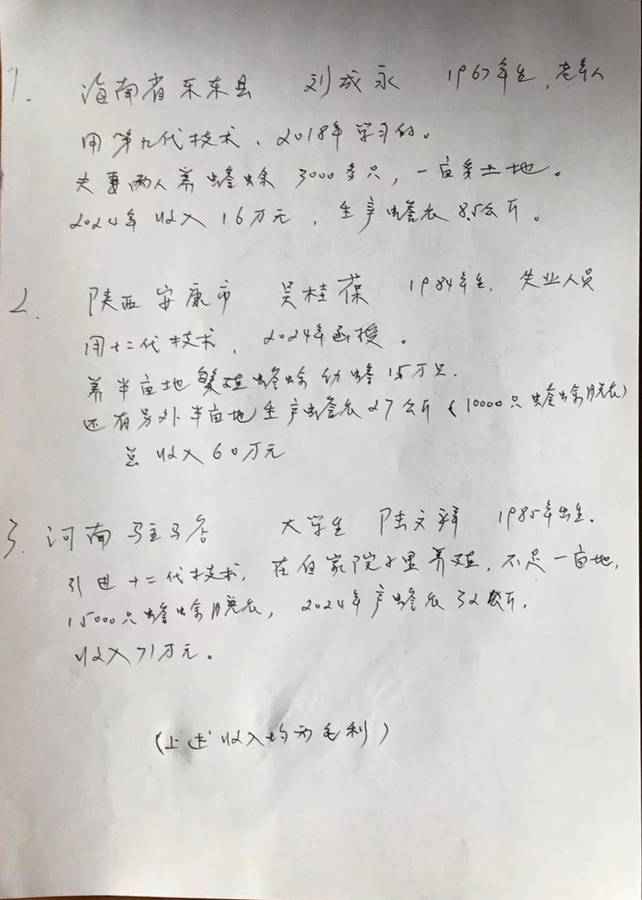 1. 海南省乐东县 刘成永 1967年生,老年人
用第九代技术、2018年学习的。
夫妻两人养蟾蜍3000多只,一亩多土地。
2024年收入16万元,生产蟾衣8.5公斤。
2. 陕西安康市 吴桂葆 1984年生. 失业人员
用十二代技术,2024年函授.
养半亩地繁殖蟾蜍幼蟾15万只.
还有另外半亩地生产蟾衣27公斤(10000只蟾蜍脱衣)
总收入60万元
3. 河南驻马店 大学生 陆文祥 1985年出生.
引进十二代技术,在自家院子里养殖,不足一亩地,
15000只蟾蜍脱衣,2024年产蟾衣32公斤.
收入71万元。
(上述收入均为毛利)